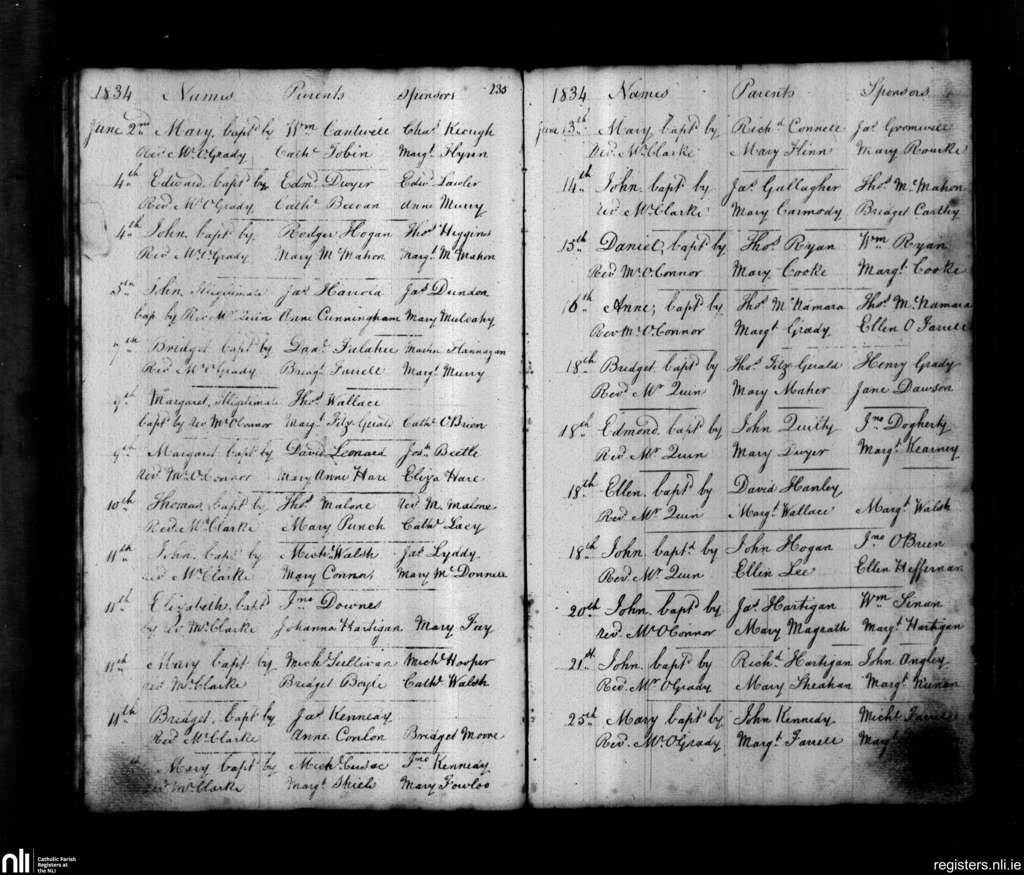 1834 Names Parents Sponsors 235
June 2nd Mary, bapt by Wm Cantwell Chas Keough
Rev Mr O'Grady Cathe Tobin Margt Flynn
4th Edward bapt by Edmd Dwyer Edwd Lawler
Revd Mr O'Grady Cathe Beevan Anne Murry
4th John bapt by Rodger Hogan Thos Higgins
Revd Mr O'Grady Mary McMahon Margt McMahon
5th John Illigitimate Jas Jas Dundon
bap by Rev Mr Quin Anne Cunningham Mary Mulcahy
7th Bridget bapt by Danl Falahee Flannagan
Revd Mr O'Grady Bridgt Farrell Margt Murry
9th Margaret, Illigitimate Thos Wallace
bapt by Rev Mr O'Connor Margt Fitz Gerald Cathe O'Brien
9th Margaret bapt by David Leonard Josh Beetle
Revd Mr O'Connor Mary Anne Hare Eliza Hare
10th Thomas bapt by Thos Malone Revd M. Malone
Revd Mr Clarke Mary Punch Cathe Lacy
11th John bapt by Michl Walsh Jas Lyddy
Revd Mr Clarke Mary Connor Mary McDonnell
11th Elizabeth, bapt Jno Downes
by Rev Mr Clarke Johanna Hartigan Mary Fay
11th Mary bapt by Michl Sullivan Michl Hooper
Revd Mr Clarke Bridget Boyle Cathe Walsh
11th Bridget, bapt by Jas Kennedy
Revd Mr Clarke Anne Conlon Bridget Moore
Mary bapt by Michl Cusac Jno Kennedy
Revd Mr Clarke Margt Shiels Mary Fowloo
1834 Names Parents Sponsors
June 13th Mary bapt by Richd Connell Jas Gromwell
Revd Mr Clarke Mary Flinn Mary Rourke
14th John bapt by Jas Gallagher Thos McMahon
Revd Mr Clarke Mary Carmody Bridget Carthy
15th Daniel, bapt by Thos Ryan Wm Ryan
Revd Mr O'Connor Mary Cooke Margt Cooke
16th Anne; bapt by Thos McNamara Thos McNamara
Revd Mr O'Connor Margt Grady Ellen O Farrell
18th Bridget bapt by Thos Fitz Gerald Henry Grady
Revd Mr Quin Mary Maher Jane Dawson
18th Edmond bapt by John Quilty Jno Dogherty
Revd Mr Quin Mary Dwyer Margt Kearney
18th Ellen bapt by David Hanley
Revd Mr Quin Margt Wallace Margt Walsh
18th John bapt by John Hogan Jno O'Brien
Revd Mr Quin Ellen Lee Ellen Heffernan
20th John bapt by Jas Hartigan Wm Linan
Revd Mr O'Connor Mary Magrath Margt Hartigan
21st John bapt by Richd Hartigan John Angley
Revd Mr O'Grady Mary Sheahan Margt
25th Mary bapt by John Kennedy Michl Farrell
Revd Mr O'Grady Margt Farrell Margt
nli Catholic Parish
Registers at
the NLI
registers.nli.ie